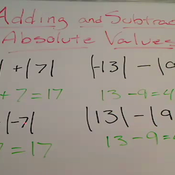 Adding and Subtrac
Absolute Values
| + |7| |-13| - |9
+ 7 = 17 13 - 9 = 4
|-7| |13| - |9
7 = 17 13 - 9 =